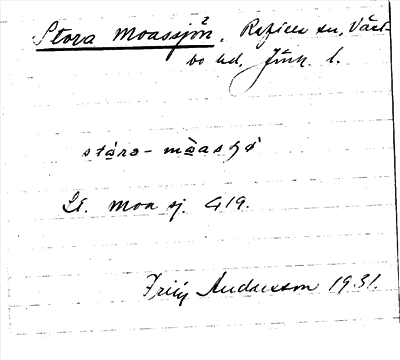 Stora Moassjön, Reftele sn, Väst-
bo hd, Jönk. l.
stóra- mòasȷø
St. Moa sj. G19.
Fritz Andersson 1931.